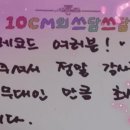 10CM의 쓰담쓰담
레코드 여러분!
주셔서 정말 감사
무대인 만큼 최
니다.